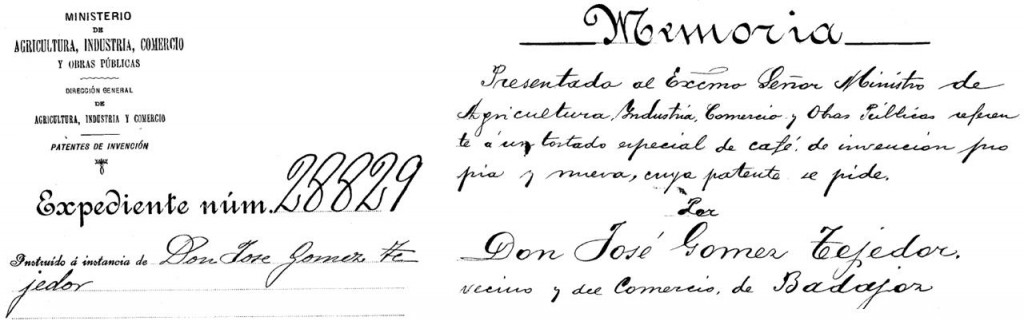 MINISTERIO
DE
AGRICULTURA, INDUSTRIA, COMERCIO
Y OBRAS PÚBLICAS
DIRECCIÓN GENERAL
DE
AGRICULTURA, INDUSTRIA Y COMERCIO
PATENTES DE INVENCIÓN
Expediente núm. 28829
Instruído á instancia de Don Jose Gomez Te
jedor
Memoria
Presentada al Excmo Señor Ministro de
Agricultura, Industria, Comercio y Obras Públicas referen
te á un tostado especial de café de invención pro
pia y nueva, cuya patente se pide.
Por
Don José Gomez Tejedor,
vecino y del Comercio, de Badajoz